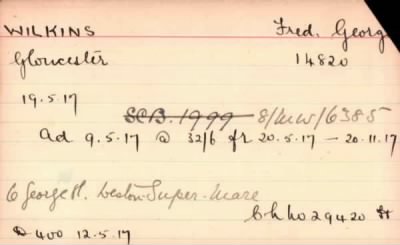 WILKINS Fred. Georg
Gloucester 14820
19.5.17
SCB. 1999 8/MW/6385
Ad 9.5.17 @ 32/6 fr 20.5.17 — 20.11.17
6 George St. Weston-Super-Mare
Ch No 29420
400 12.5.17